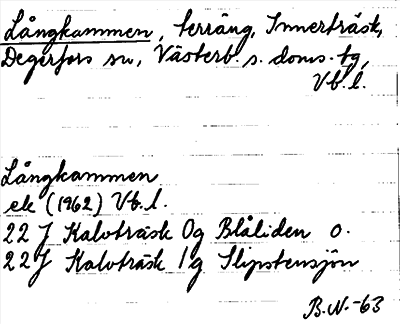 Långkammen, terräng, Innerträsk,
Degerfors sn, Västerb. s. doms. tg,
Vb. l.
Långkammen
ek (1962) Vb. l.
22 J Kalvträsk 0g Blåliden o.
22 J Kalvträsk 1g Slipstensjön
B.N.-63